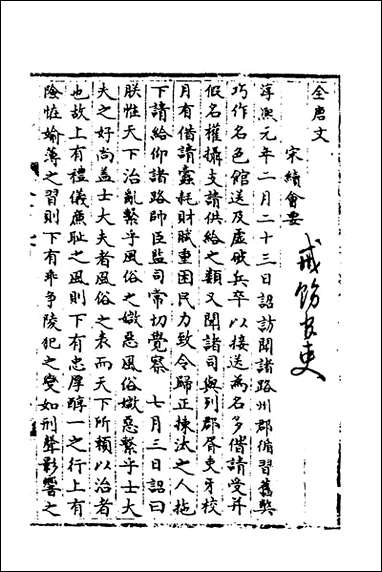 全唐文
宋續會要
戒飭官吏
淳熙元年二月二十三日詔訪聞諸路州郡循習舊弊
巧作名色館送及虛破兵卒以接送為名多借請受并
佀名權攝支請供給之類又聞諸司與列郡胥吏牙校
月有借請蠹耗財賦重困民力致令歸正揀汰之人拖
下請給仰諸路帥臣監司常切覺察 七月三日詔曰
朕惟天下治亂繫乎風俗之媺惡風俗媺惡繫乎士大
夫之好尚蓋士大夫者風俗之表而天下所賴以治者
也故上有禮儀廉恥之風則下有忠厚醇一之行上有
險恠媮薄之習則下有乖爭陵犯之變如形聲影響之